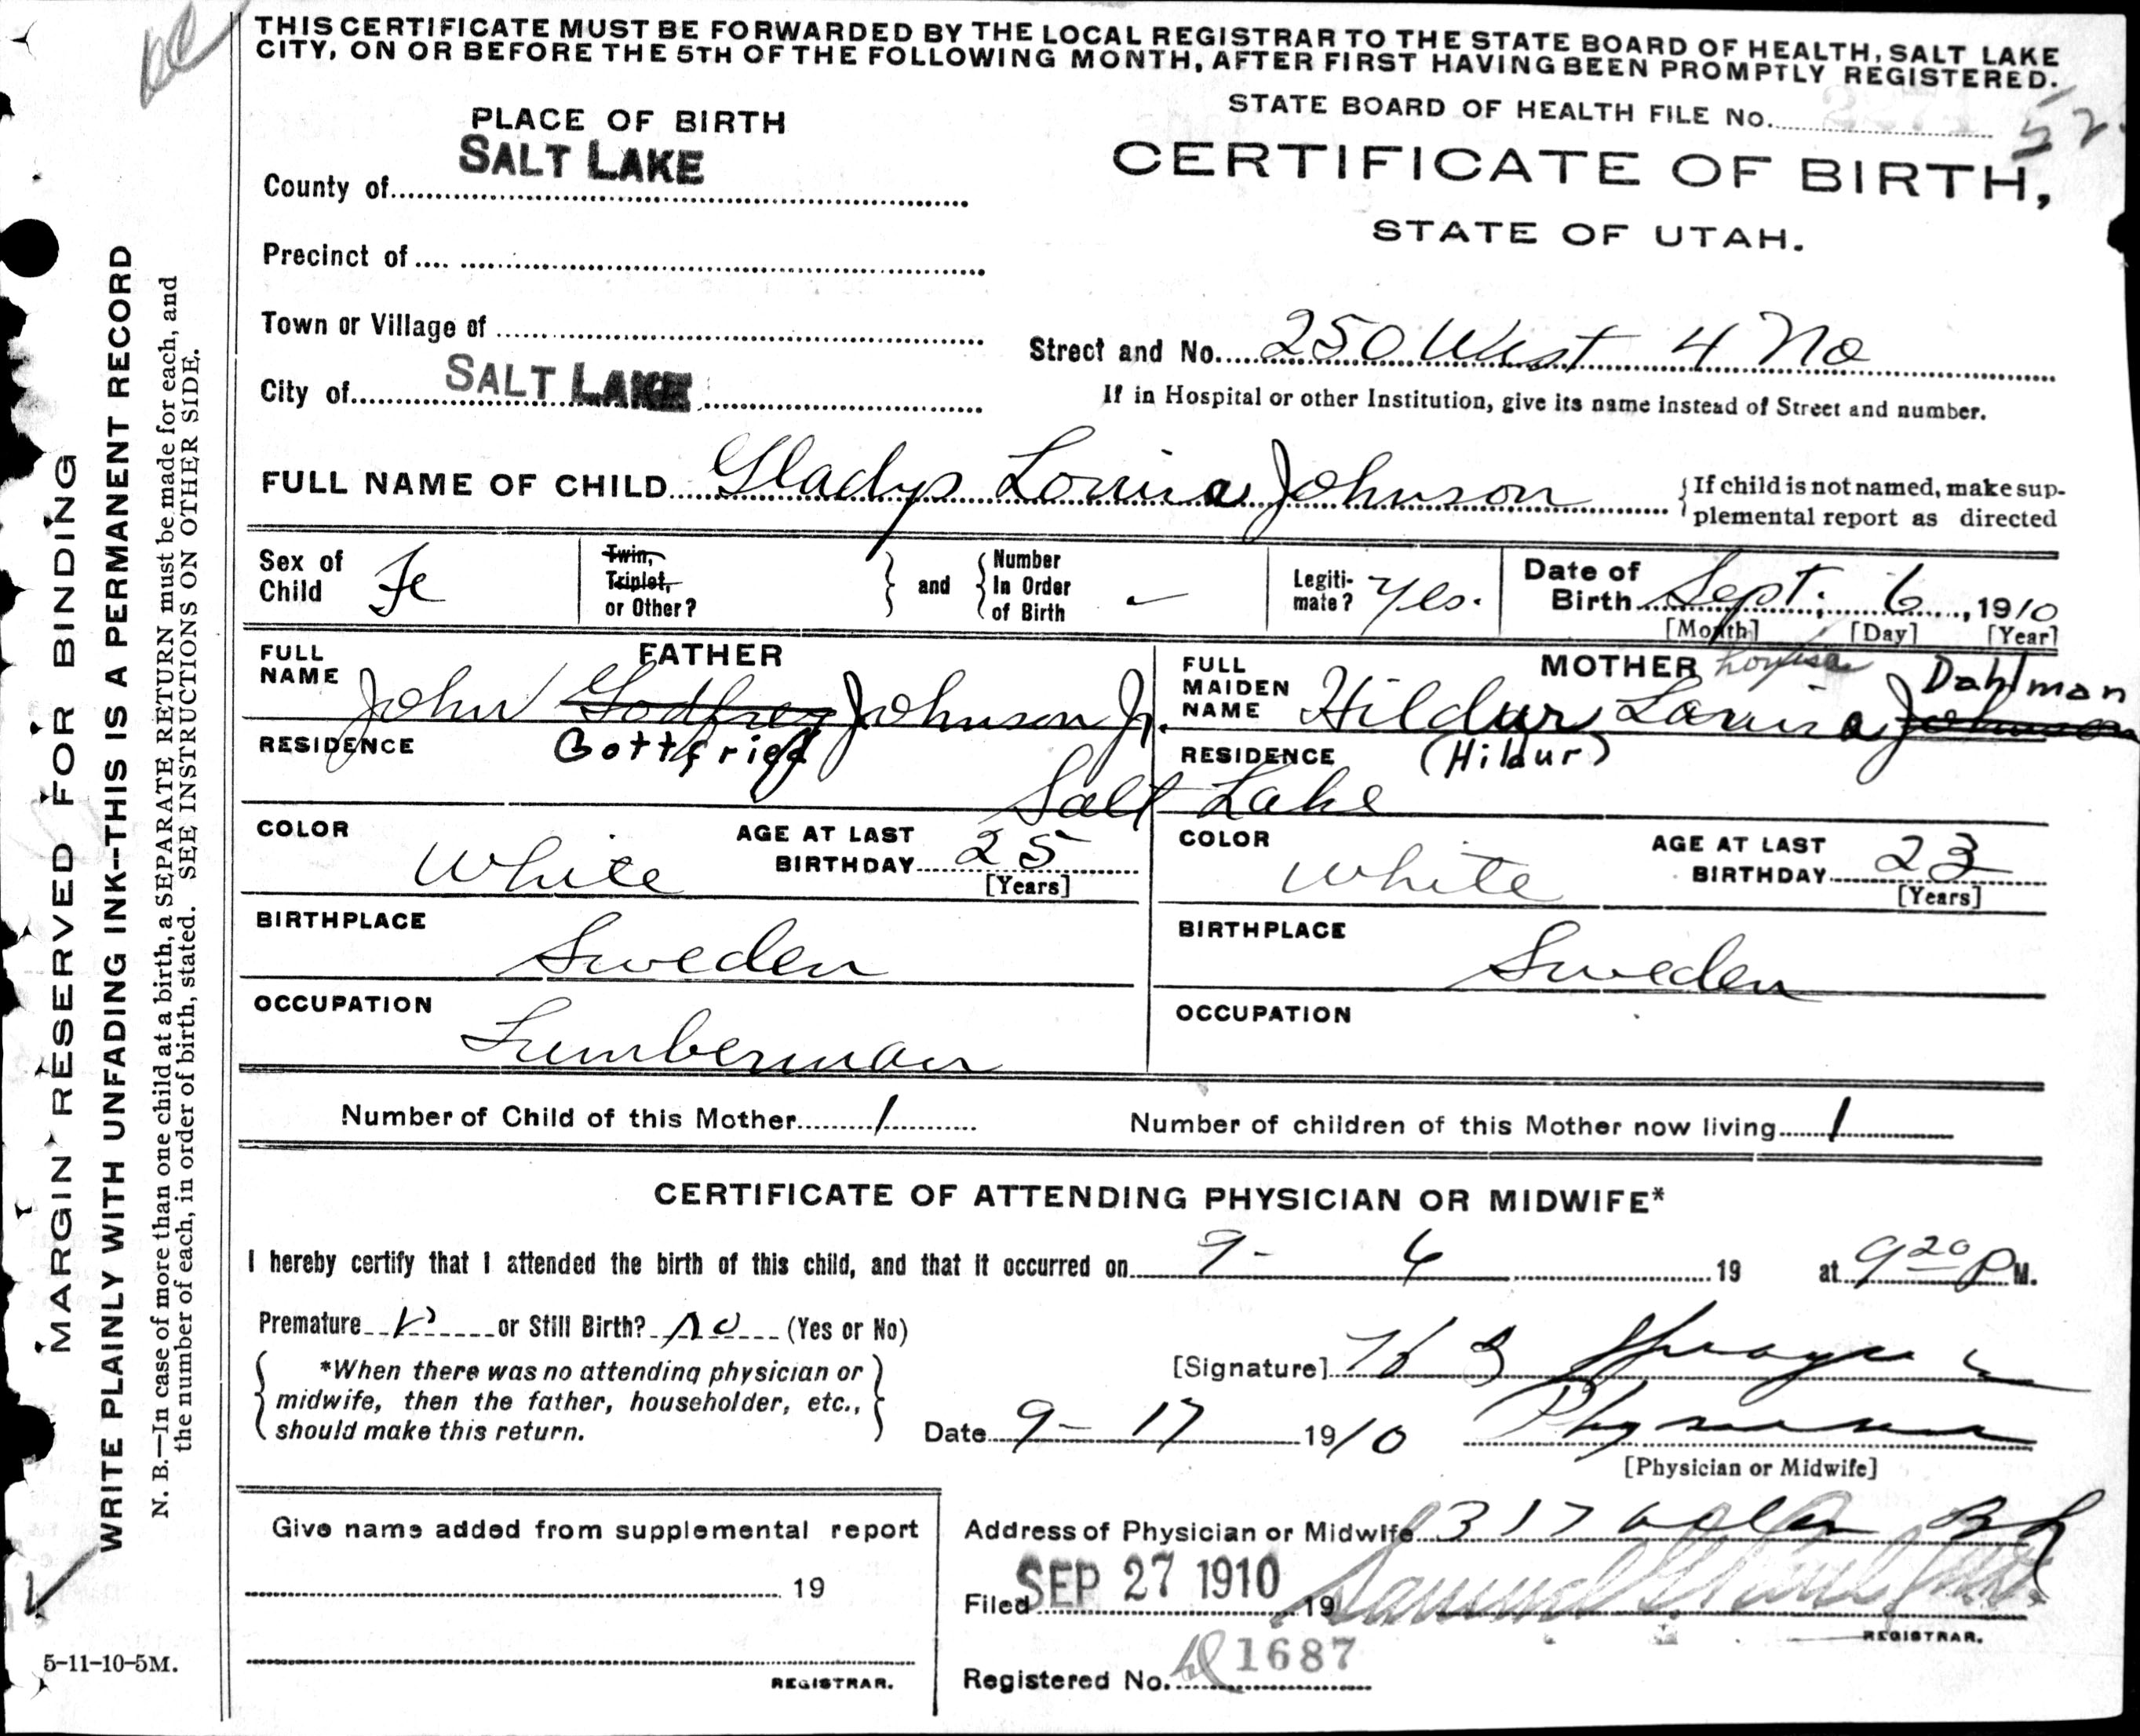 THIS CERTIFICATE MUST BE FORWARDED BY THE LOCAL REGISTRAR TO THE STATE BOARD OF HEALTH, SALT LAKE
CITY, ON OR BEFORE THE 5TH OF THE FOLLOWING MONTH, AFTER FIRST HAVING BEEN PROMPTLY REGISTERED.
STATE BOARD OF HEALTH FILE No. 52
PLACE OF BIRTH
CERTIFICATE OF BIRTH,
STATE OF UTAH.
County of SALT LAKE
Precinct of
Town or Village of
Street and No. 250 West 4 No
City of SALT LAKE
If in Hospital or other Institution, give its name instead of Street and number.
FULL NAME OF CHILD Gladys Louisa Johnson
If child is not named, make sup-
plemental report as directed
Sex of Child Fe
Twin, Triplet, or Other?
and
Number In Order of Birth -
Legiti-mate? Yes.
Date of Birth Sept. 6, 1910
[Month] [Day] [Year]
FATHER
FULL NAME John Godfrey Johnson Jr.
Gottfried
RESIDENCE
MOTHER
Louisa Dahlman
FULL MAIDEN NAME Hildur Louisa Johnson
(Hildur)
RESIDENCE
Salt Lake
COLOR White
AGE AT LAST BIRTHDAY 25
[Years]
COLOR White
AGE AT LAST BIRTHDAY 23
[Years]
BIRTHPLACE Sweden
BIRTHPLACE Sweden
OCCUPATION Lumberman
OCCUPATION
Number of Child of this Mother 1
Number of children of this Mother now living 1
CERTIFICATE OF ATTENDING PHYSICIAN OR MIDWIFE*
I hereby certify that I attended the birth of this child, and that it occurred on 9- 6 19 at 9 20 P M.
Premature or Still Birth? no (Yes or No)
*When there was no attending physician or
midwife, then the father, householder, etc.,
should make this return.
[Signature] Sprague
Date 9- 17 1910 Physician
[Physician or Midwife]
Give name added from supplemental report
19
REGISTRAR.
Address of Physician or Midwife 317
Filed SEP 27 1910 19 Samuel G. Paul
REGISTRAR.
Registered No. 1687
MARGIN RESERVED FOR BINDING
WRITE PLAINLY WITH UNFADING INK--THIS IS A PERMANENT RECORD
N. B.—In case of more than one child at a birth, a SEPARATE RETURN must be made for each, and
the number of each, in order of birth, stated. SEE INSTRUCTIONS ON OTHER SIDE.
5-11-10-5M.